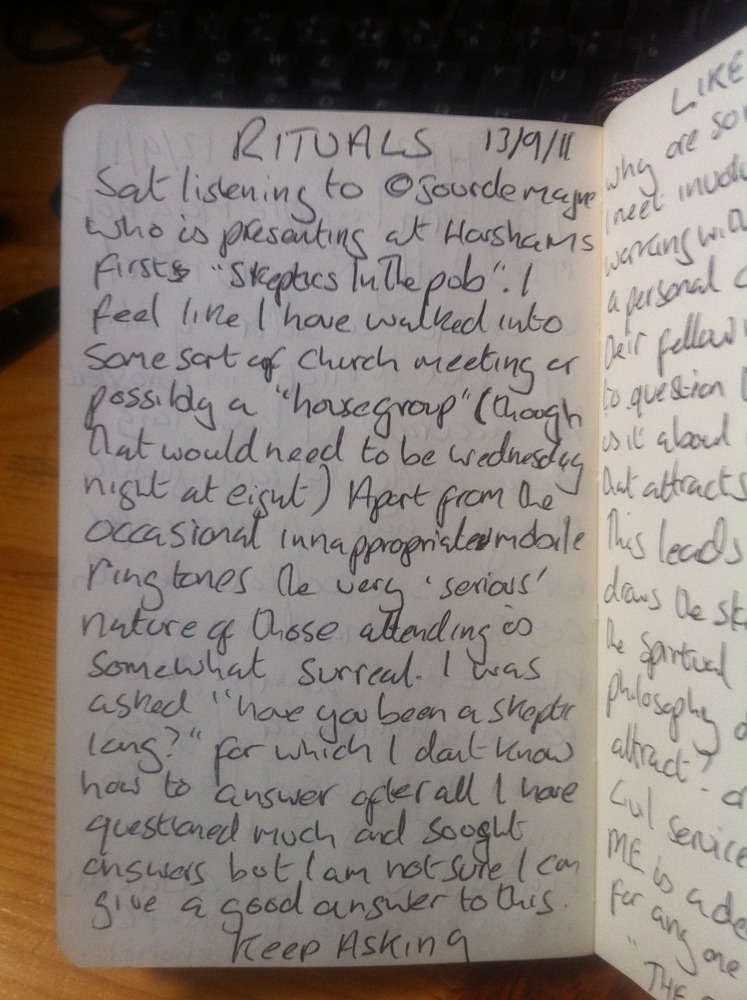 RITUALS 13/9/11
Sat listening to @jourdemayne
who is presenting at Horshams
firsts "Skeptics In The pub". I
feel like I have walked into
some sort of church meeting or
possibly a "housegroup" (though
that would need to be wednesday
night at eight) Apart from the
occasional innappropriate mobile
ring tones the very 'serious'
nature of those attending is
somewhat surreal. I was
asked "have you been a skeptic
long?" for which I dont know
how to answer after all I have
questioned much and sought
answers but I am not sure I can
give a good answer to this.
Keep Asking
LIKE
why are
meet
working with
a personal
their fellow
to question
is it about
that attracts
This leads
draws the
the spiritual
philosophy
attract?
Civil service
ME is a
for any one
"THE